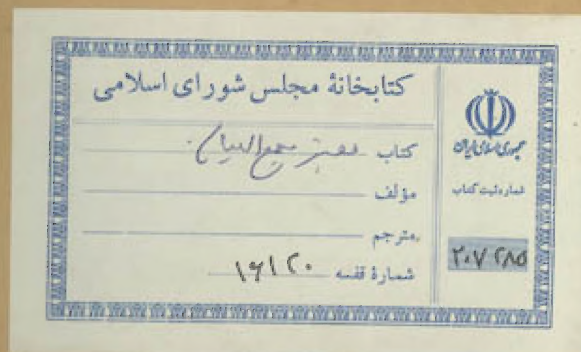 کتابخانهٔ مجلس شورای اسلامی
کتاب مجمع البیان
مؤلف
مترجم
شمارهٔ قفسه ۱۶۱۲۰
جمهوری اسلامی ایران
شماره ثبت کتاب
۲۰۷۲۸۵